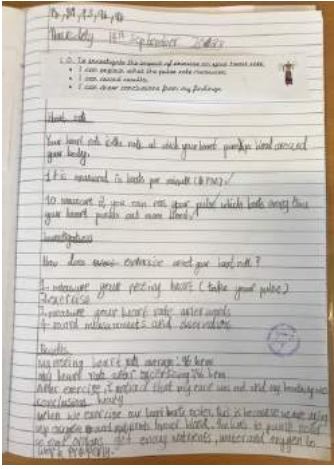 Thursday 16th September
L.O. To investigate the impact of exercise on your heart rate.
I can explain what the pulse rate measures.
I can record results.
I can draw conclusions from my findings.
Heart rate
Your heart rate is the rate at which your heart pumps blood around
your body.
It is measured in beats per minute (BPM)
To measure it you can feel your pulse which beats every time
your heart pumps out more blood
Investigation
How does exercise affect your heart rate?
measure your resting heart (take your pulse)
exercise
measure your heart rate afterwards
record measurements and observations
Results
my resting heart rate average: 96 bpm
my heart rate after exercising:
After exercise, I notice that my face was red and my breathing was
heavy
when we exercise our heart beats faster, this is because
blood
to our organs get enough nutrients, water and oxygen to
work properly.